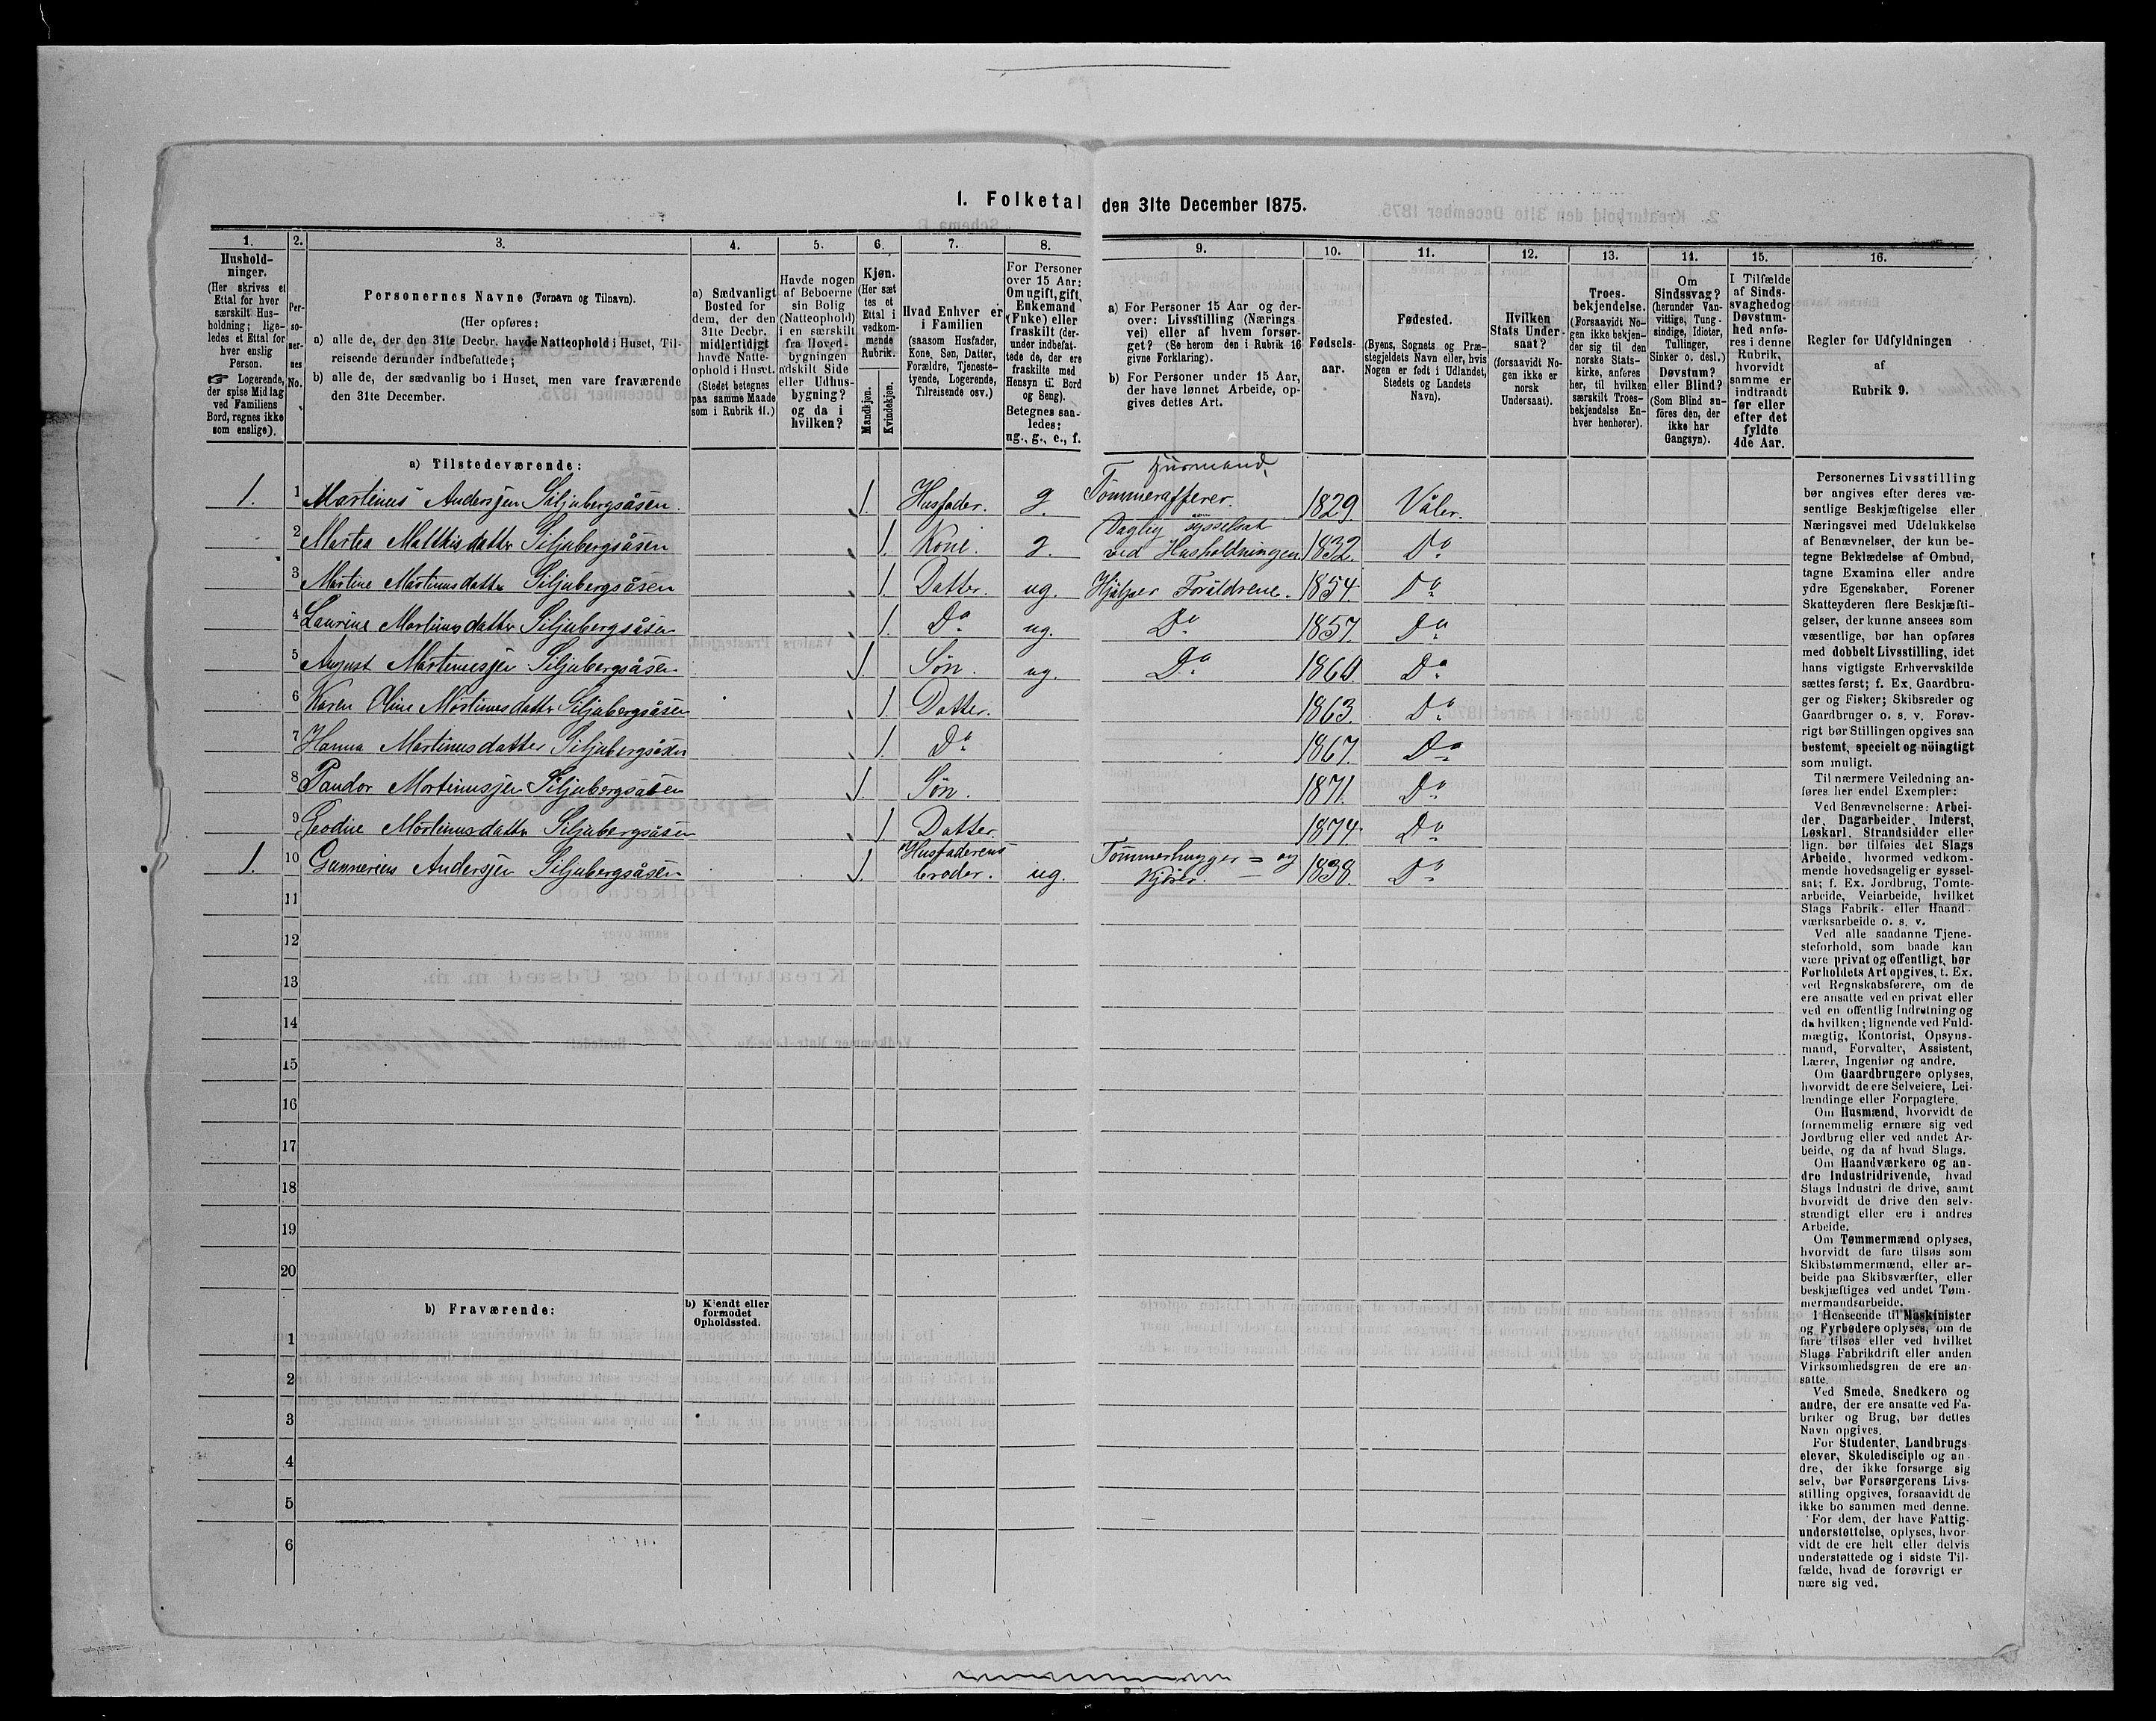 1. Folketal den 31te December 1875.
1.
Hushold-
ninger.
(Her skrives et
Ettal for hver
særskilt Hus-
holdning; lige-
ledes et Ettal for
hver enslig
Person.
☞ Logerende,
der spise Middag
ved Familiens
Bord, regnes ikke
som enslige).
2.
Per-
so-
ner-
nes
No.
3.
Personernes Navne (Fornavn og Tilnavn).
(Her opføres:
a) alle de, der den 31te Decbr. havde Natteophold i Huset, Til-
reisende derunder indbefattede;
b) alle de, der sædvanlig bo i Huset, men vare fraværende
den 31te December.
4.
a) Sædvanligt
Bosted for
dem, der den
31te Decbr.
midlertidigt
havde Natte-
ophold i Huset.
(Stedet betegnes
paa samme Maade
som i Rubrik 11.)
5.
Havde nogen
af Beboerne
sin Bolig
(Natteophold)
i en særskilt
fra Hoved-
bygningen
adskilt Side
eller Udhus-
bygning?
og da i
hvilken?
6.
Kjøn.
(Her sæt
tes et
Ettal i
vedkom-
mende
Rubrik.
Mandkjøn.
Kvindekjøn.
7.
Hvad Enhver er
i Familien
(saasom Husfader,
Kone, Søn, Datter,
Forældre, Tjeneste-
tyende, Logerende,
Tilreisende osv.)
8.
For Personer
over 15 Aar:
Om ugift, gift,
Enkemand
(Enke) eller
fraskilt (der-
under indbefat-
tede de, der ere
fraskilte med
Hensyn til Bord
og Seng).
Betegnes saa-
ledes:
ug., g., e., f.
9.
a) For Personer 15 Aar og der-
over: Livsstilling (Nærings
vei) eller af hvem forsør-
get? (Se herom den i Rubrik 16
givne Forklaring).
b) For Personer under 15 Aar,
der have lønnet Arbeide, op-
gives dettes Art.
10.
Fødsels-
aar.
11.
Fødested.
(Byens, Sognets og Præ-
stegjeldets Navn eller, hvis
Nogen er født i Udlandet,
Stedets og Landets
Navn).
12.
Hvilken
Stats Under-
saat?
(forsaavidt No-
gen ikke er
norsk
Undersaat).
13.
Troes-
bekjendelse.
(Forsaavidt No-
gen ikke bekjen-
der sig til den
norske Stats-
kirke, anføres
her, til hvilken
særskilt Troes-
bekjendelse En-
hver henhører).
14.
Om
Sindssvag?
(herunder Van-
vittige, Tung-
sindige, Idioter,
Tullinger,
Sinker o. desl.)
Døvstum?
eller Blind?
(Som Blind an-
føres den, der
ikke har
Gangsyn).
15.
I Tilfælde
af Sinds-
svaghed og
Døvstum-
hed anfø-
res i denne
Rubrik,
hvorvidt
samme er
indtraadt
før eller
efter det
fyldte
4de Aar.
16.
Regler for Udfyldningen
af
Rubrik 9.
a) Tilstedeværende:
Husmand,
1. 1 Martinus Andersen Siljubergsåsen. 1. Husfader. g. Tømmerafferer. 1829. Våler.
2 Martea Matthisdatter Siljubergsåsen 1. Kone. g. Daglig sysselsat ved Husholdningen 1832. Do
3 Martine Martinusdatter Siljubergsåsen 1. Datter. ug. Hjælper Forældrene. 1854. Do
4 Laurine Martinusdatter Siljubergsåsen 1. Do ug. Do 1857. Do
5 August Martinussen Siljubergsåsen 1. Søn. ug. Do 1860 Do
6 Karen Oline Martinusdatter Siljubergsåsen 1. Datter. 1863. Do
7 Hanna Martinusdatter Siljubergsåsen 1. Do 1867. Do
8 Pandor Martinussen Siljubergsåsen 1. Søn. 1871. Do
9 Martinusdatter Siljubergsåsen 1. Datter. 1874. Do
1. 10 Gunnerius Andersen Siljubergsåsen 1. Husfaderens broder. ug. Tømmerhugger= og kjører. 1838. Do
11
12
13
14
15
16
17
18
19
20
b) Fraværende:
b) Kjendt eller
formodet
Opholdssted.
1
2
3
4
5
6
Personernes Livsstilling
bør angives efter deres væ-
sentlige Beskjæftigelse eller
Næringsvei med Udelukkelse
af Benævnelser, der kun be-
tegne Beklædelse af Ombud,
tagne Examina eller andre
ydre Egenskaber. Forener
Skatteyderen flere Beskjæfti-
gelser, der kunne ansees som
væsentlige, bør han opføres
med dobbelt Livsstilling, idet
hans vigtigste Erhvervskilde
sættes først; f. Ex. Gaardbru-
ger og Fisker; Skibsreder og
Gaardbruger o. s. v. Forøv-
rigt bør Stillingen opgives saa
bestemt, specielt og nöiagtigt
som muligt.
Til nærmere Veiledning an-
føres her endel Exempler:
Ved Benævnelserne: Arbei-
der, Dagarbeider, Inderst,
Løskarl, Strandsidder eller
lign. bør tilføies det Slags
Arbeide, hvormed vedkom-
mende hovedsagelig er syssel-
sat; f. Ex. Jordbrug, Tomte-
arbeide, Veiarbeide, hvilket
Slags Fabrik- eller Haand-
værksarbeide o. s. v.
Ved alle saadanne Tjene-
steforhold, som baade kan
være privat og offentligt, bør
Forholdets Art opgives, t. Ex.
ved Regnskabsførere, om de
ere ansatte ved en privat eller
ved en offentlig Indretning og
da hvilken; lignende ved Fuld-
mægtig, Kontorist, Opsyns-
mand, Forvalter, Assistent,
Lærer, Ingeniør og andre.
Om Gaardbrugere oplyses,
hvorvidt de ere Selveiere, Lei-
lændinge eller Forpagtere.
Om Husmænd, hvorvidt de
fornemmelig ernære sig ved
Jordbrug eller ved andet Ar-
beide, og da af hvad Slags.
Om Haandværkere og an-
dre Industridrivende, hvad
Slags Industri de drive, samt
hvorvidt de drive den selv-
stændigt eller ere i andres
Arbeide.
Om Tømmermænd oplyses,
hvorvidt de fare tilsøs som
Skibstømmermænd, eller ar-
beide paa Skibsværfter, eller
beskjæftiges ved andet Tøm-
mermandsarbeide.
I Henseende til Maskinister
og Fyrbødere oplyses, om de
fare tilsøs eller ved hvilket
Slags Fabrikdrift eller anden
Virksomhedsgren de ere an-
satte.
Ved Smede, Snedkere og
andre, der ere ansatte ved Fa-
briker og Brug, bør dettes
Navn opgives.
For Studenter, Landbrugs-
elever, Skoledisciple og an-
dre, der ikke forsørge sig
selv, bør Forsørgerens Livs-
stilling opgives, forsaavidt de
ikke bo sammen med denne.
For dem, der have Fattig-
understøttelse, oplyses, hvor-
vidt de ere helt eller delvis
understøttede og i sidste Til-
fælde, hvad de forøvrigt er
nære sig ved.